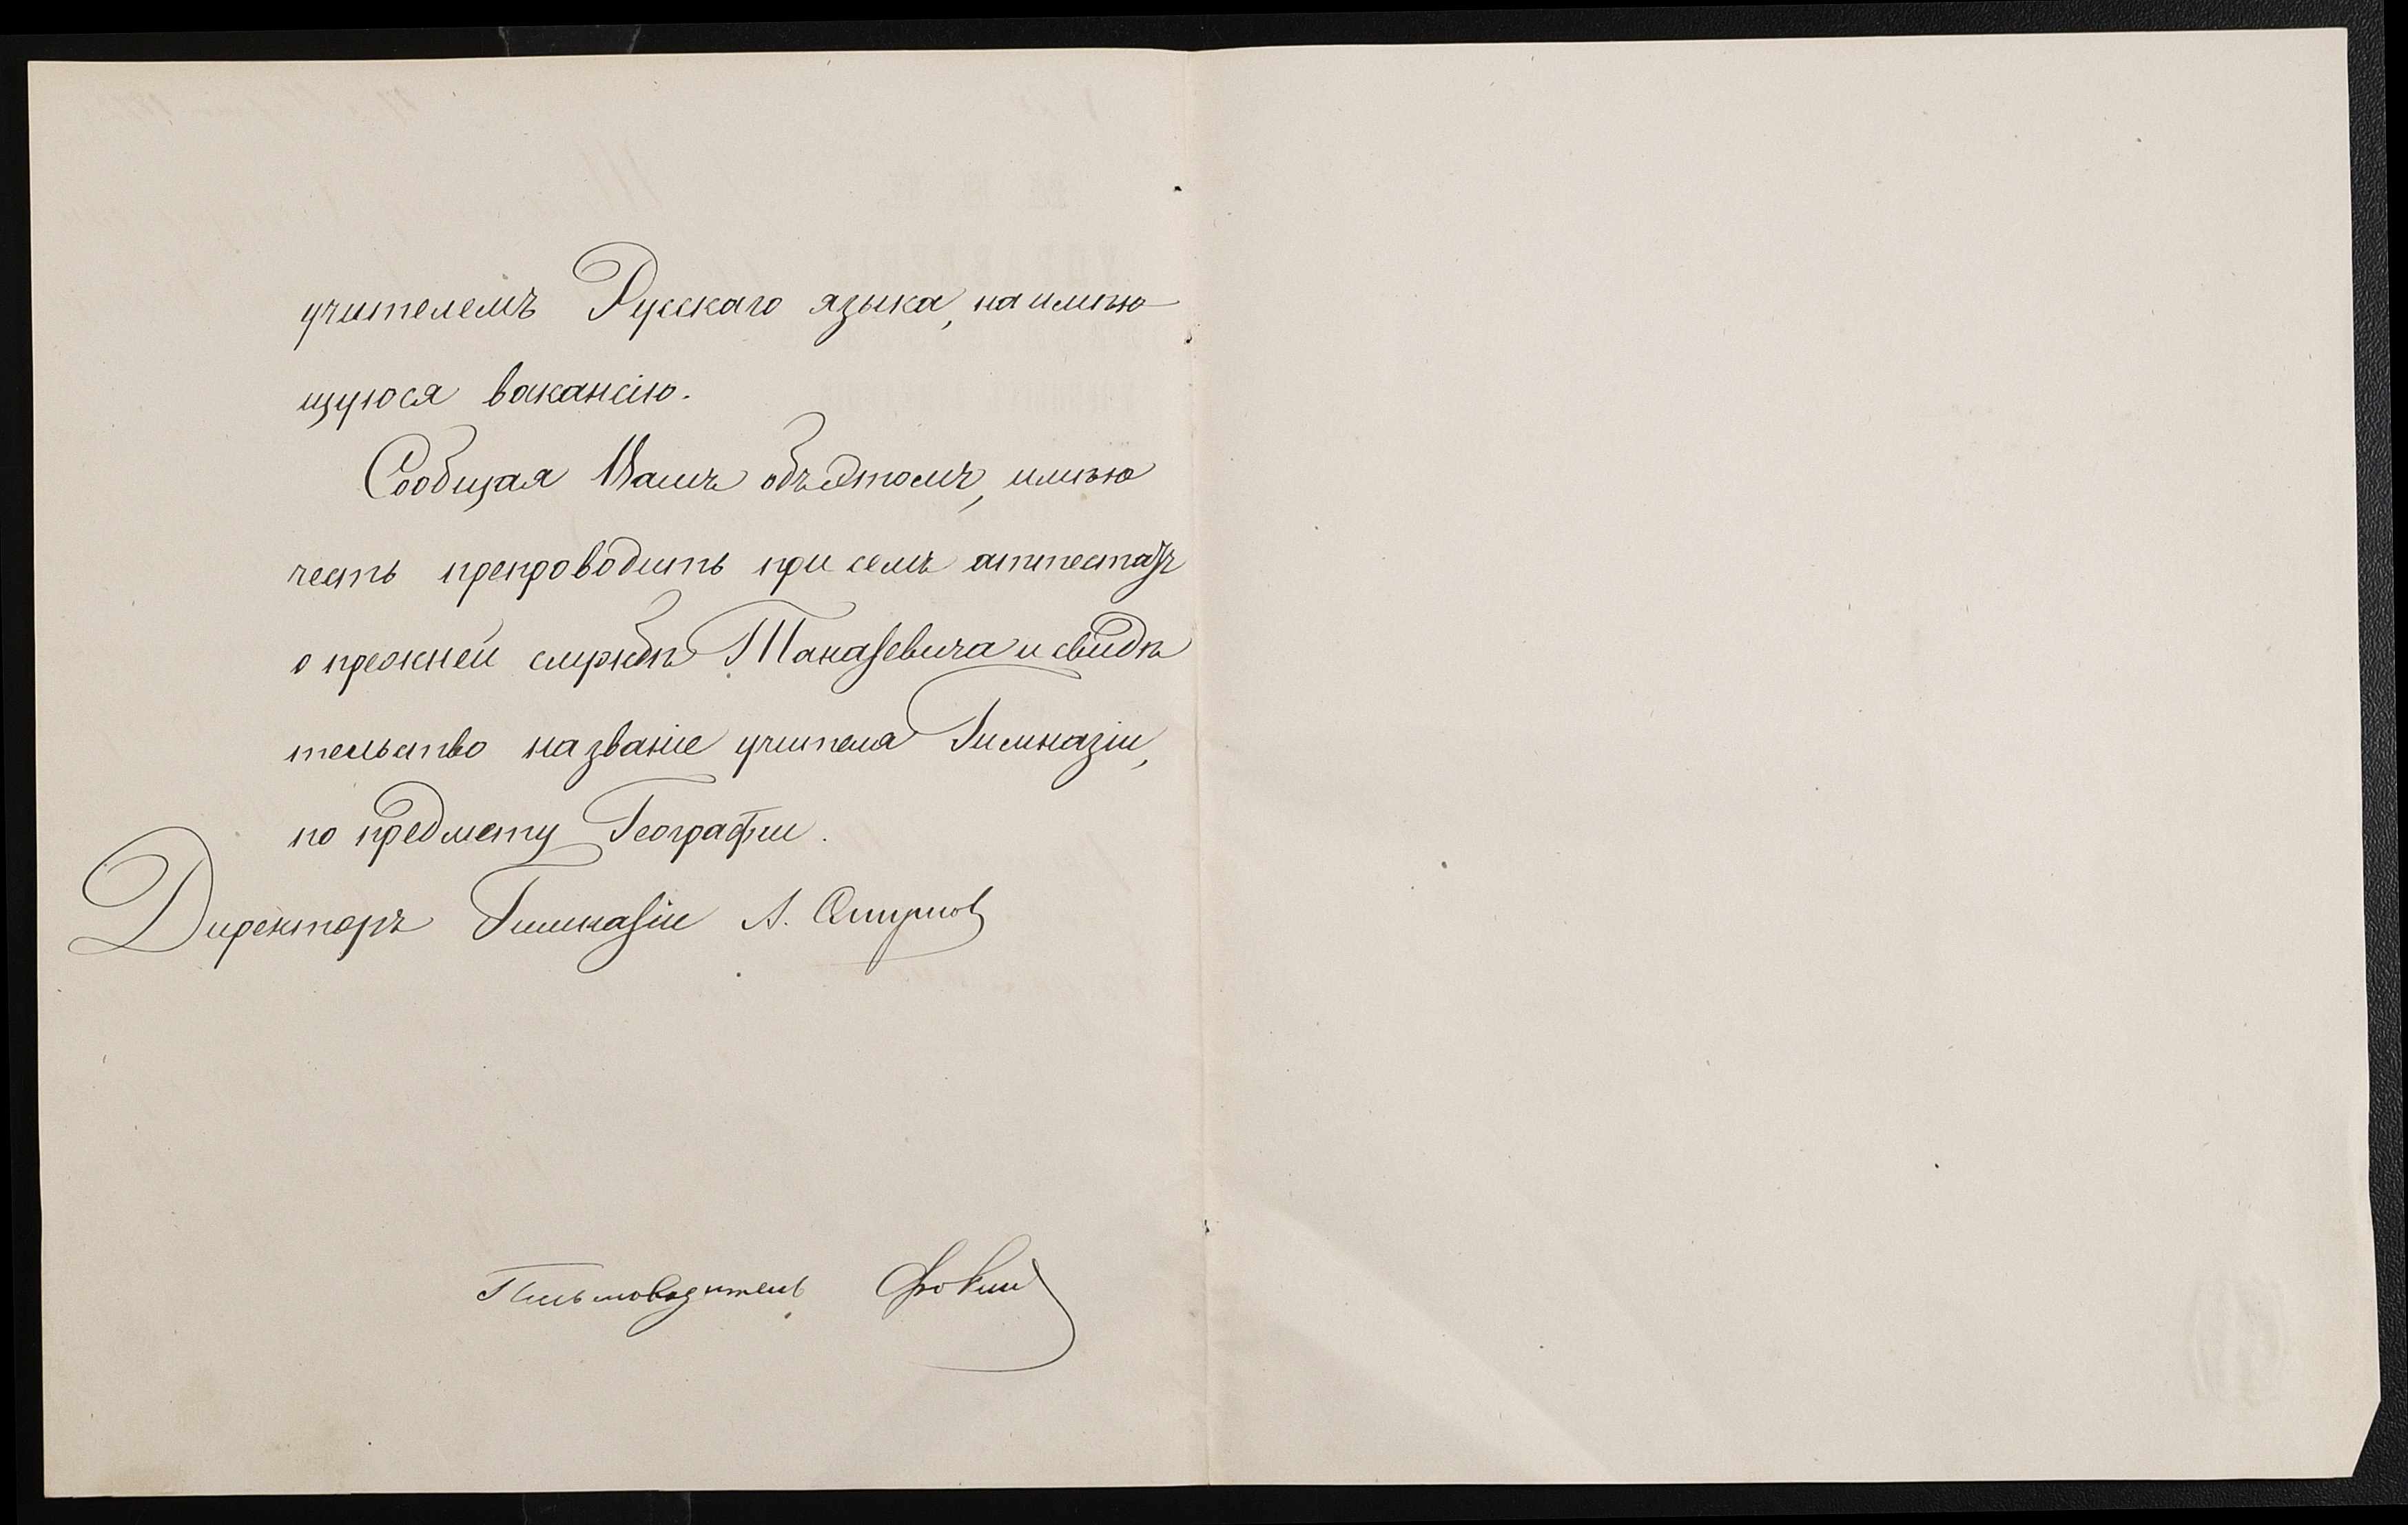 учителемъ Русскаго языка, на имѣю
щуюся вакансію.
Сообщая Вамъ объ этомъ, имѣю
честь препроводить при семъ аттестатъ
о прежней службѣ Танаѕевича и свидѣ
тельство названіе учителя Гимназіи,
по предмету Географіи.
Директоръ Гимназіи А. Смирнов
Письмоводитель Фокин